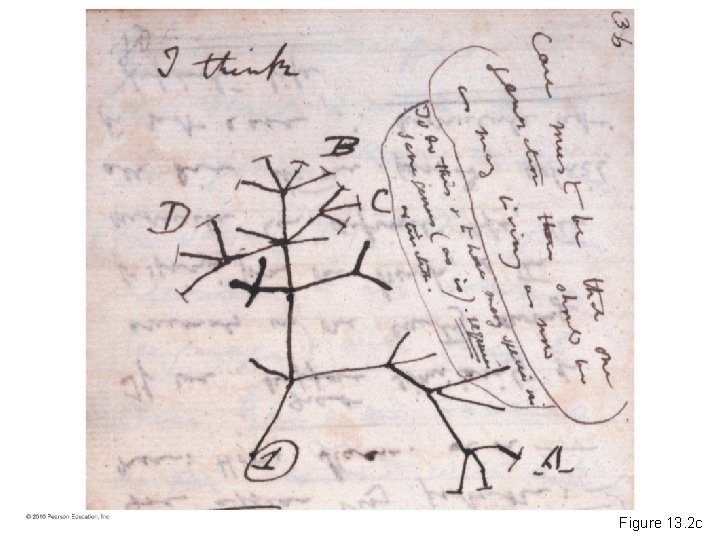 36
I think
Case must be that one
generation then should be
as many living as now
To do this & to have many species in
same genus (as is). requires
extinction.
B
C
D
A
1
© 2010 Pearson Education, Inc
Figure 13.2c